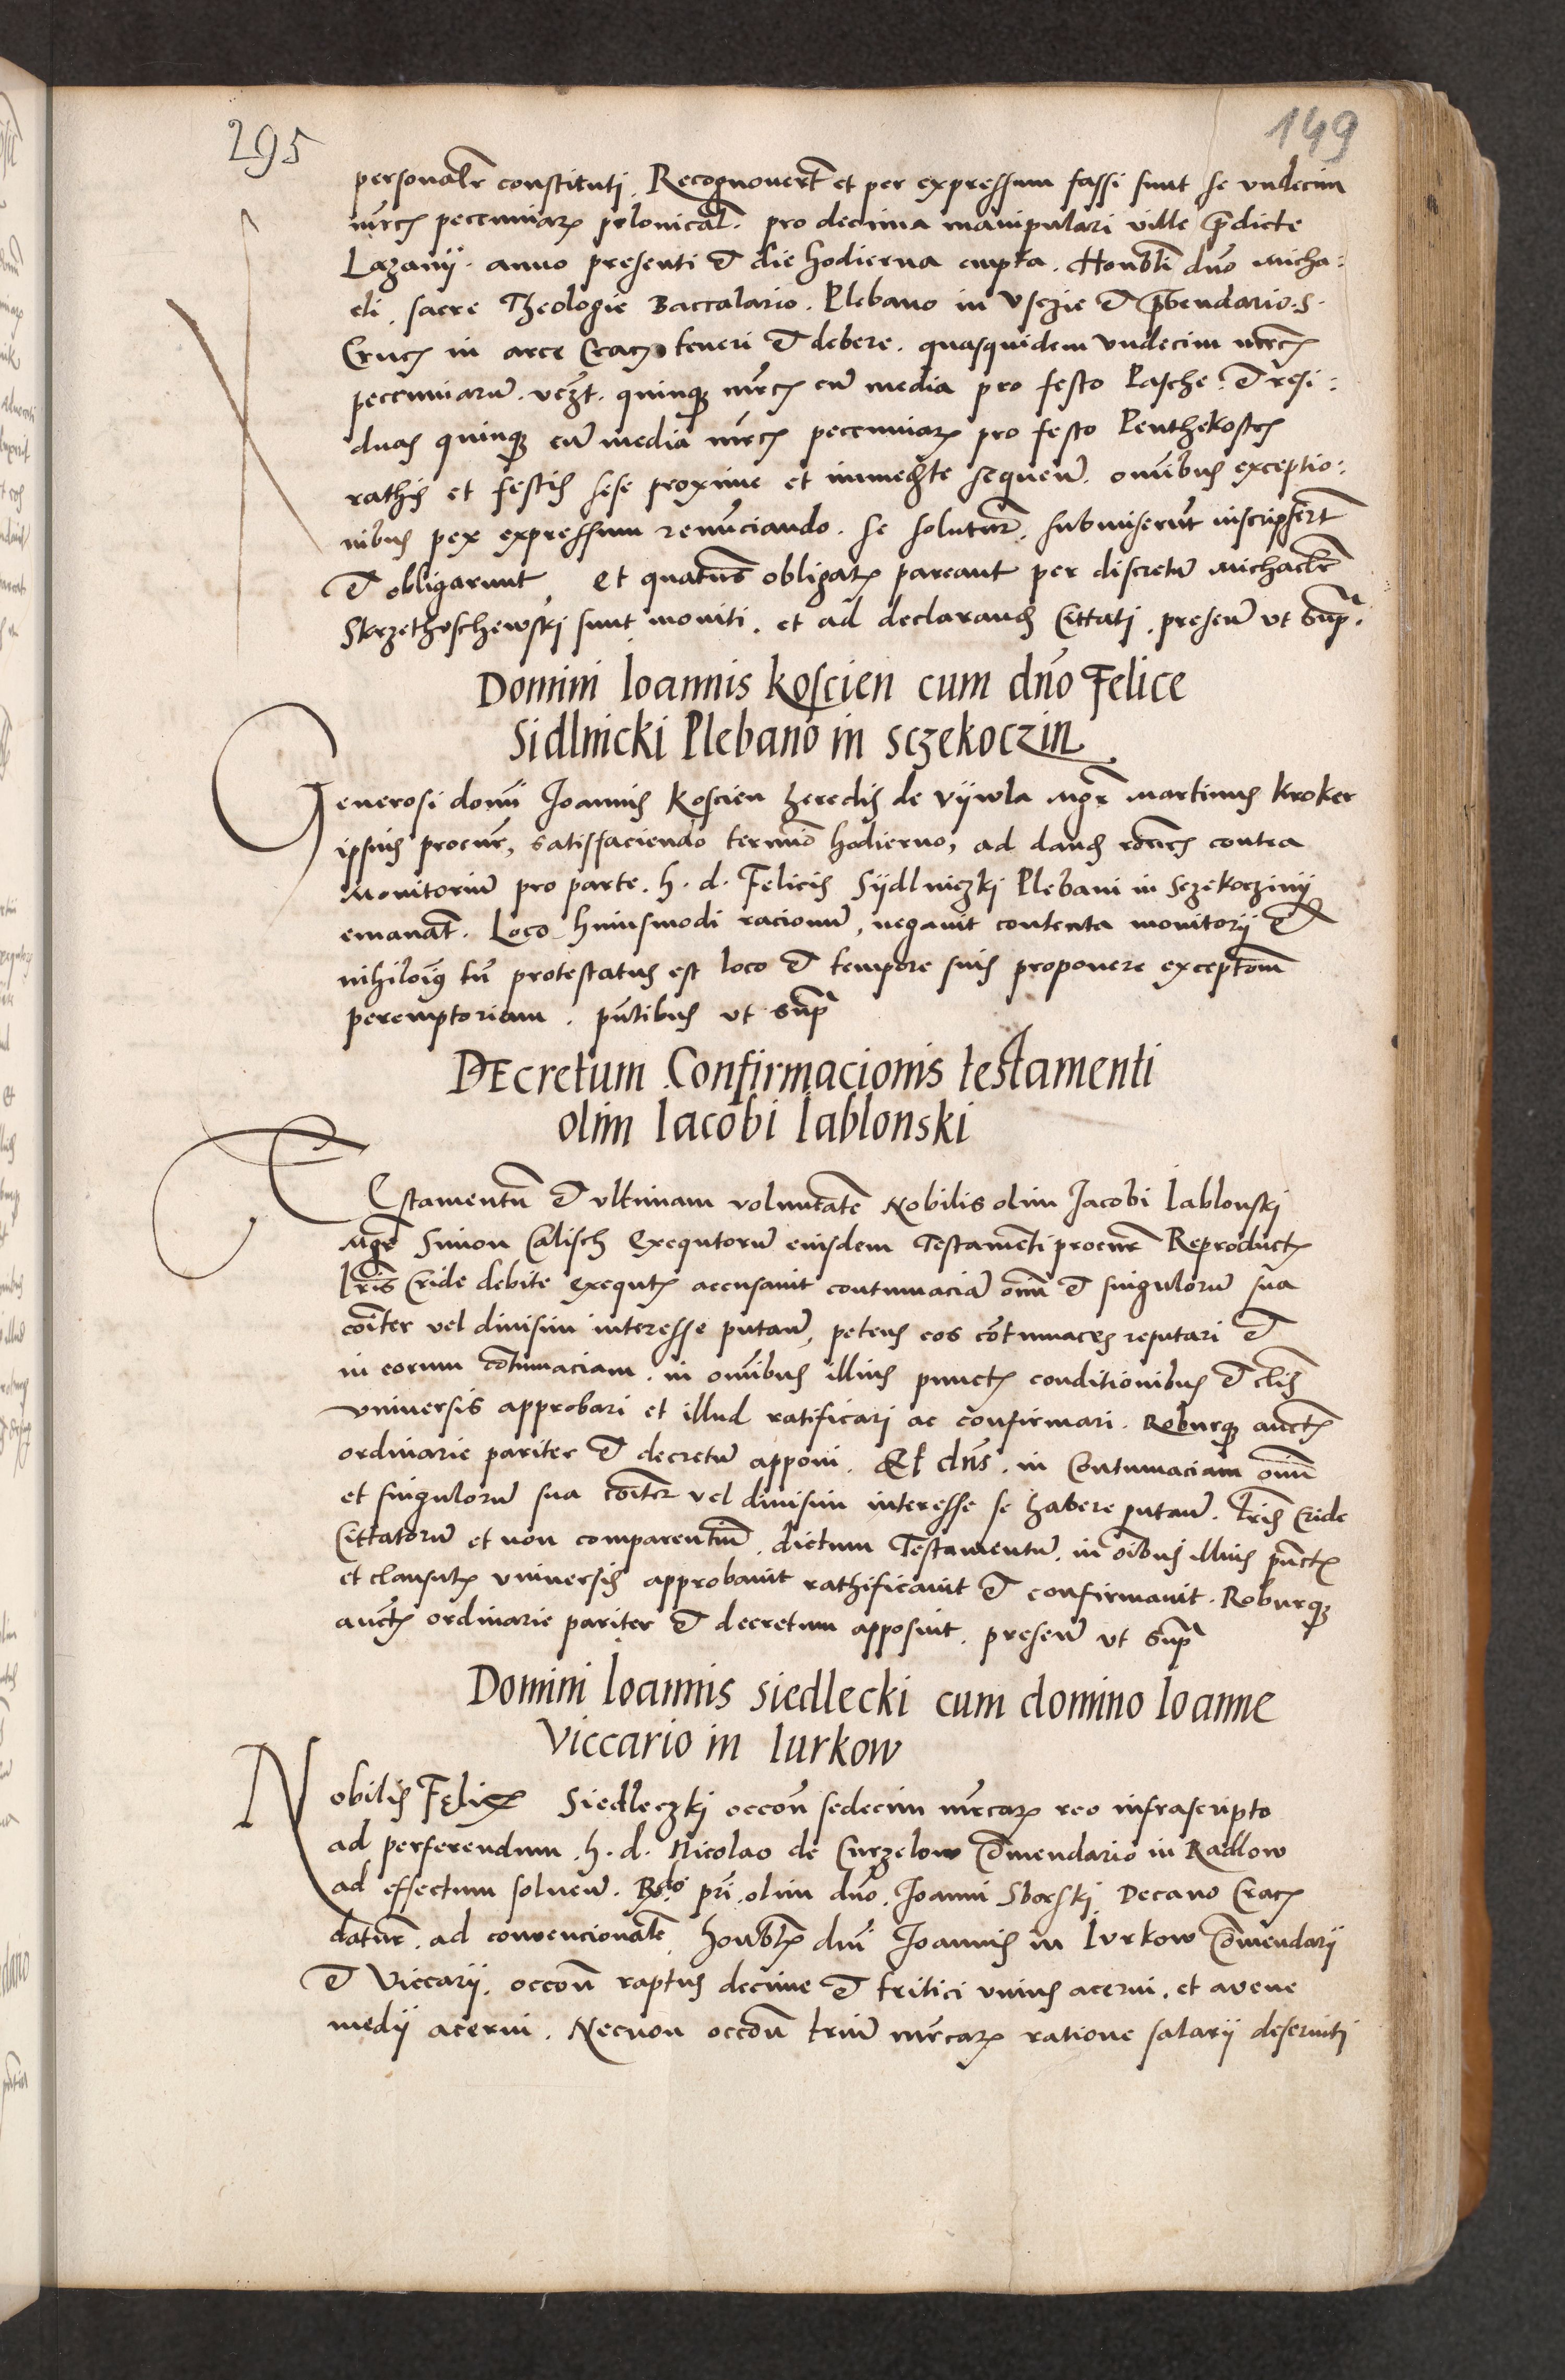 295
149
personalr constituti. Recognovert et per expressum fassi sunt se vndecim
mrcs pecuniarz polonical. pro decima manipulari ville pdicte
Lazanij. anno presenti et die hodierna empta. Honbli dno Micha:
eli. sacre Theologie Baccalario. Plebano in Vszie et pbendario. S.
Crucs in arce Crac. teneri et debere. quasquidem vndecim mrcs
pecuniaru. vezt. quinqz mrcs cu media pro festo Pasche. et resi:
duas quinqz cu media mrcs pecuniarz pro festo Penthekosts
rathis et festis sese proxime et immedte sequen. omibus exceptio:
nibus per expressum renunciando. se soluturz. submiserut inscripsert
et obligarunt. et quatus obligatz pareant per discretu Michaele
Skrzethoschewski sunt moniti. et ad declarand Cittati. presen vt sup.
Domini Ioannis Koscien cum dno Felice
Sidlnicki Plebano in Sczekoczin
Generosi domi Joannis Koscien heredis de Vijwla Mgr Martinus Kroker
ipsius procur, satisfaciendo termio hodierno, ad dand roncs contra
Monitoriu pro parte. h. d. Felicis Sijdlniczkj Plebani in Sczekoczinij
emanat. Loco huiusmodi racionu, negauit contenta monitorij et
nihiloig tn protestatus est loco et tempore suis proponere exceptom
peremptoriam. pntibus vt sup
DEcretum Confirmacionis testamenti
olim Iacobi Iablonski
TEstamentu et vltimam voluntate Nobilis olim Jacobi Iablonski
Mgr Simon Calisch Exequtoru eiusdem Testamenti procur Reproducts
lris Cride debite exequts accusauit contumacia oim et singuloru sua
coiter vel diuisim interesse putan, petens eos cotumaces reputari et
in eorum cotumaciam. in omibus illius puncts conditionibus et clis
vniuersis approbari et illud ratificari ac confirmari. Roburqz aucts
ordinarie pariter et decretu apponi. Et dns. in Contumaciam oim
et singuloru sua coiter vel diuisim interesse se habere putan. Lris Cride
Cittatoru et non comparentiu. dictum Testamentu. in oibus illius puncts
et clausulz vniuersis approbauit rathificauit et confirmauit. Roburqz
aucts ordinarie pariter et decretum apposuit. presen vt sup
Domini Ioannis Siedlecki cum domino Ioanne
Viccario in Iurkow
Nobilis Felix Siedleczkj occon sedecim mrcarz reo infrascripto
ad perferendum. h. d. Nicolao de Curzelow comendario in Radlow
ad effectum soluen. pri. olim dno. Joanni Sborskj Decano Crac
datur. ad convencionale. honbls dni Joannis in Iurkow comendarij
et Viccarij. occon raptus decime et tritici vnius acerui. et avene
medij acerui. Necnon occon triu mrcarz ratione salarij deseruiti